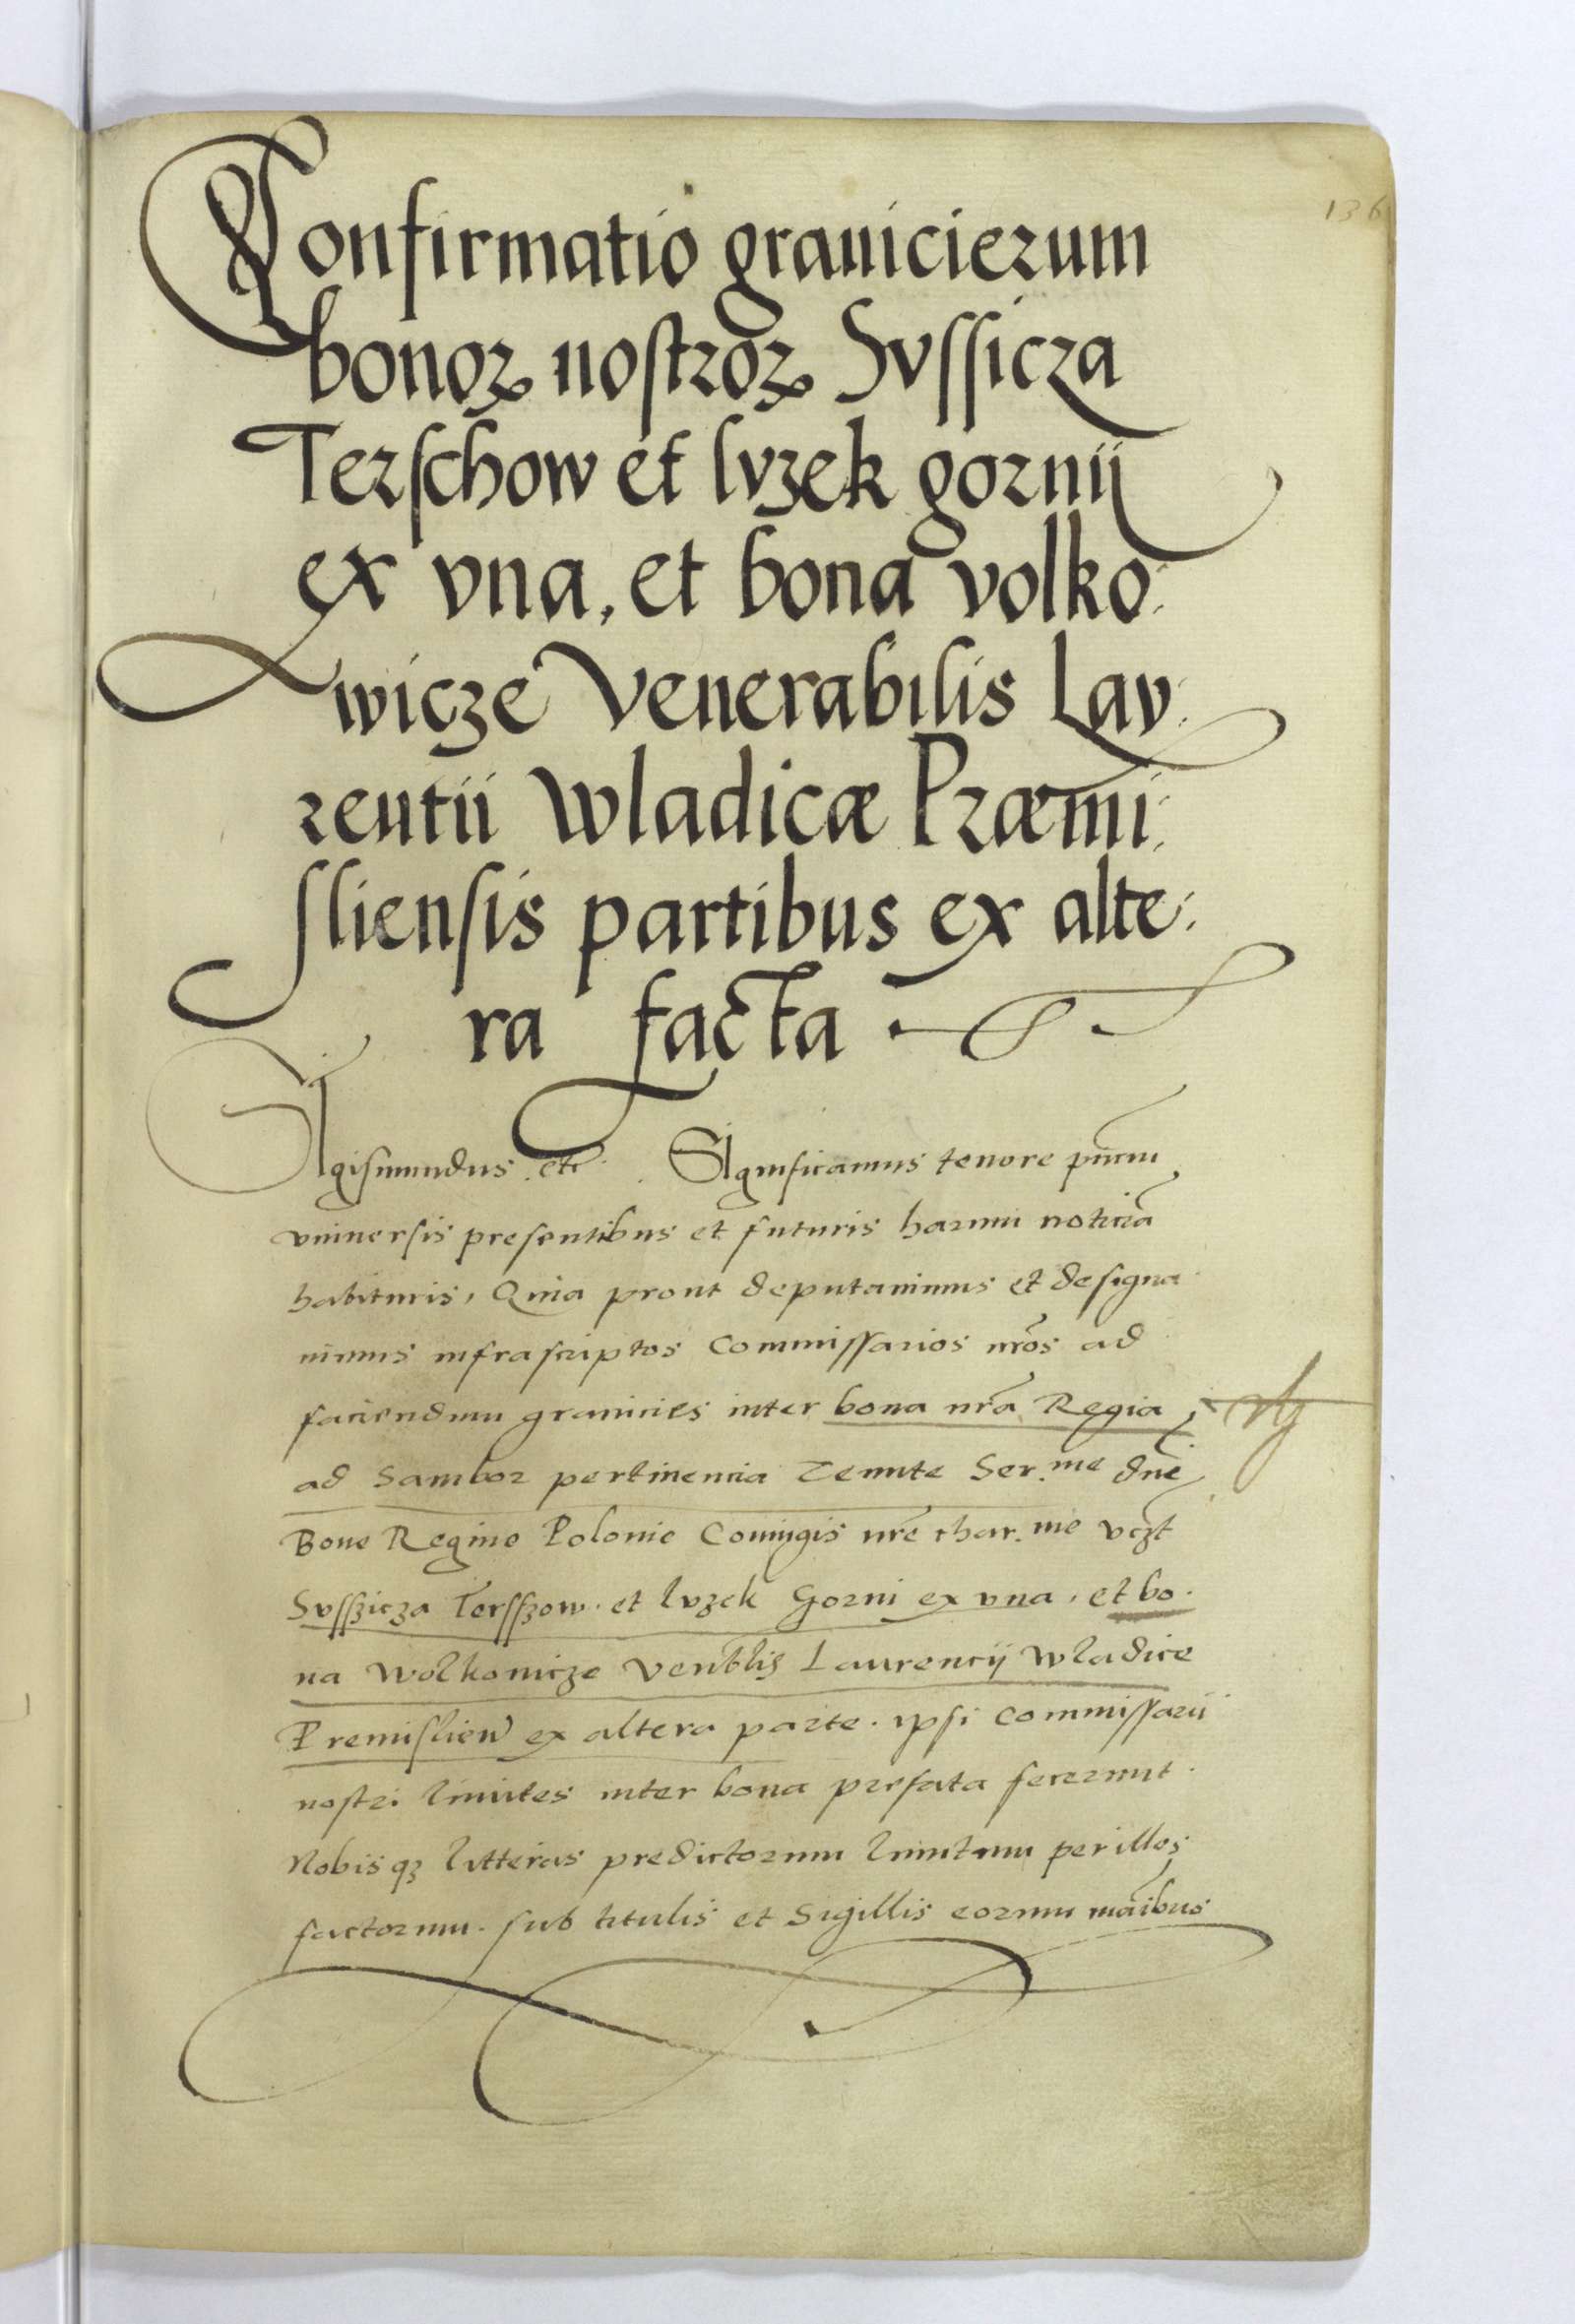 136
Confirmatio graniciezum
bonoꝝ nostroꝝ Svssicza
Terschow et lvzek gornij
ex vna, et bona volko:
wicze Venerabilis Lav:
rentii Wladicæ Præmi:
sliensis partibus ex alte:
ra facta
Sigismundus etc. Significamus tenore pn̄cium
vniuersis presentibus et futuris harum noticiā
habituris, Quia prout deputauimus et designa
uimus infrascriptos Commissarios nr̄os ad
faciendum granicies inter bona nr̄a Regia
ad Sambor pertinencia Tenute Ser.me dn̄e
Bone Regine Polonie Coniugis nr̄e char.me vczt
Svsszicza Tersszow. et lvzek Gorni ex vna, et bo.
na Wolkowicze Ven̄blis Laurencij Wladice
Premislien̄ ex altera parte. ipsi Commissarii
nostri limites inter bona prefata fecerunt.
Nobisqȝ litteras predictorum limitum per illos
factorum. sub titulis et Sigillis eorum man̄ibus